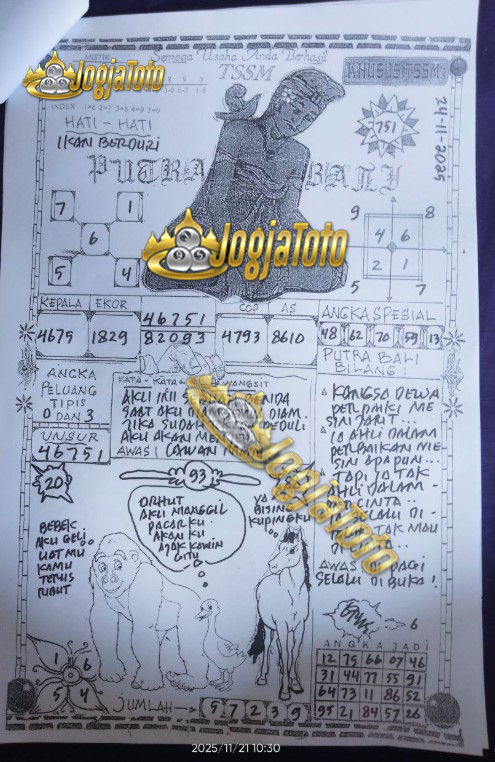 MISTIK
Semoga Usaha Anda Berhasil
TSSM
KHUSUS TSSM
JogjaToto
INDEX
HATI - HATI
IKAN BERDURI
PUTRA BALI
751
24-11-2025
7 1
6
5 4
9 8
4 6
2 1
5 7
JogjaToto
KEPALA EKOR
4675 1829
46751
82093
COP AS
4793 8610
ANGKA SPESIAL
48 62 70 59 13
PUTRA BALI
BILANG:
ANGKA
PELUANG
TIPIS
0 DAN 3
UNSUR
46751
KATA - KATA WANGSIT
AKU INI
SAAT AKU DIAM.
JIKA SUDAH PEDULI
AKU AKAN
AWAS! LAWAN
KANGSA DEWA
PERBAIKI ME
SIN JARIT...
IA AHLI DALAM
PERBAIKAN ME
SIN APAPUN...
TAPI IA TAK
AHLI DALAM
CINTA..
SELALU DI
TAK MAU
DI
AWAS PAGI
SELALU DI BUKA!
JogjaToto
20
93
BEBEK
AKU GELI
LIAT MU
KAMU
TERUS
RIBUT
ORHUT
AKU MANGGIL
PACAR KU
AKAN KU
AJAK KAWIN
GITU
YA
BISING
KUPINGKU
6
1 6
5 4
JUMLAH → 5 7 2 3 9
ANGKA JADI
12 75 66 07 46
31 44 77 55 91
64 73 11 86 52
95 21 84 57 26
2025/11/21 10:30